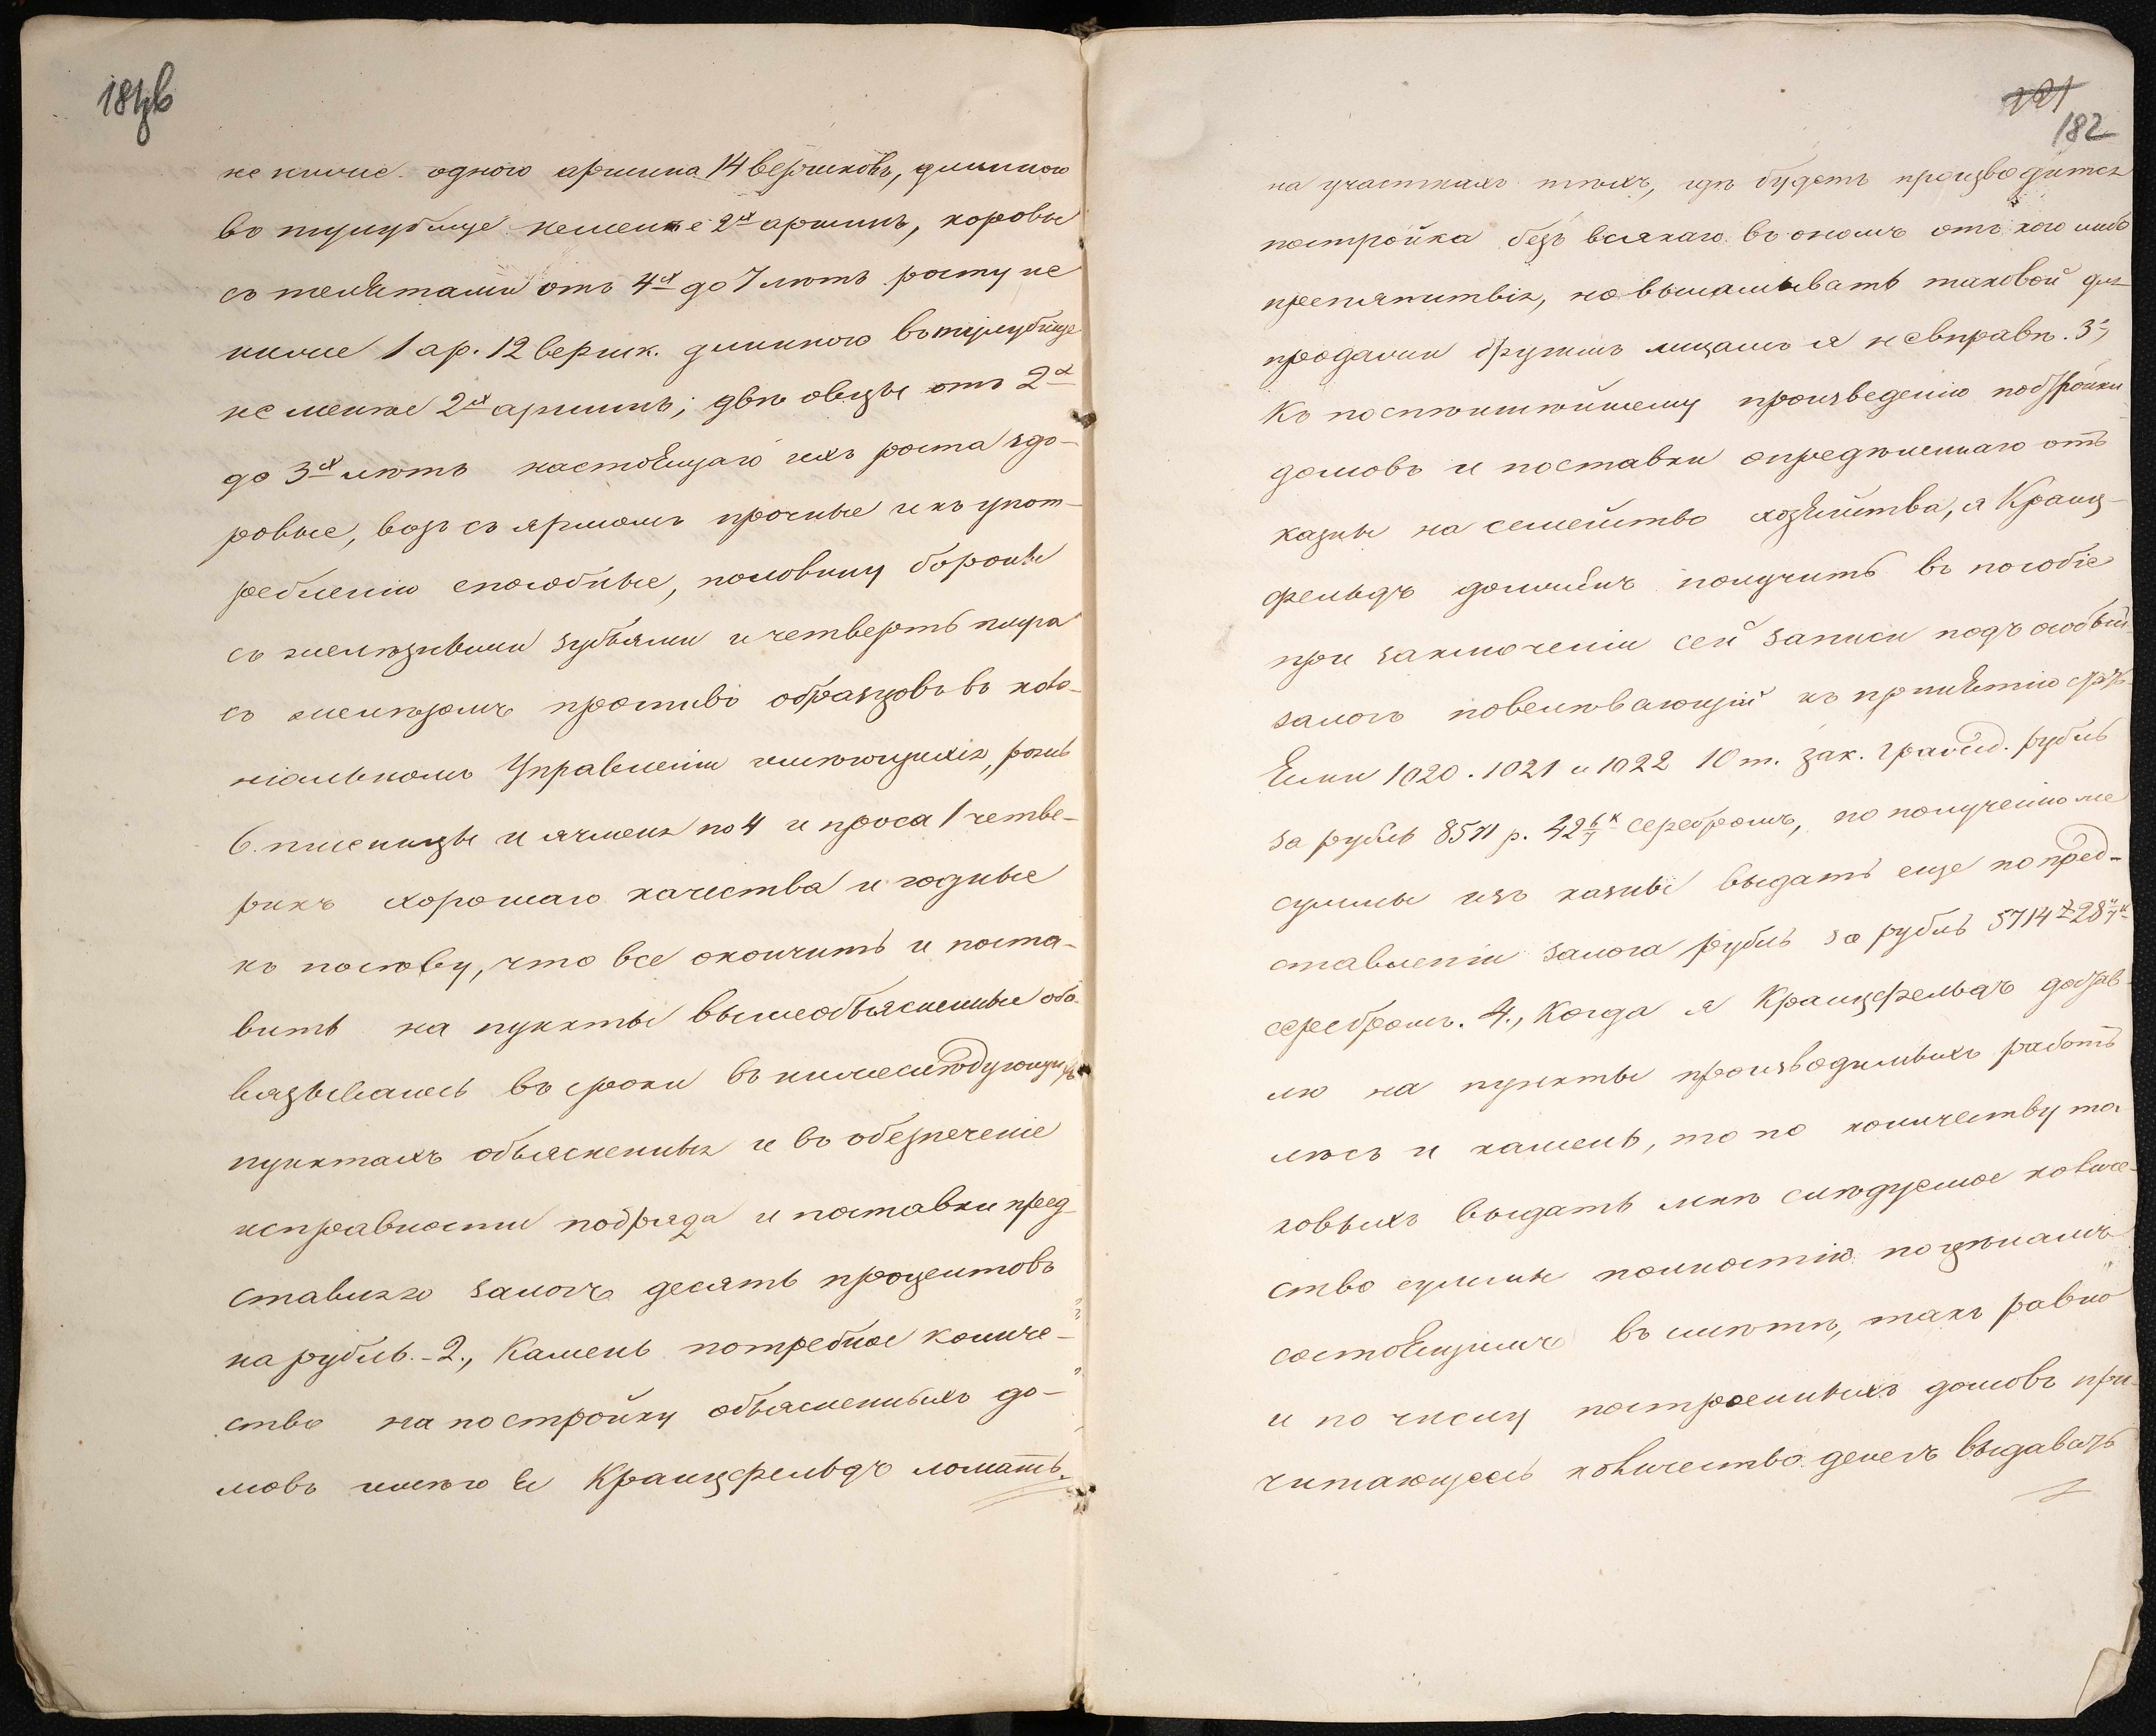 181об
не ниже одного аршина 14 вершковъ, длинною
во тулубище неменже 2хъ аршинъ, коровы
съ телятами отъ 4хъ до 7 лѣтъ росту не
ниже 1 ар. 12 вершк. длинною вътулубище
не менже 2хъ аршинъ; двѣ овцы отъ 2хъ
до 3хъ лѣтъ настоящаго ихъ роста здо-
ровые, возъ съ ярмомъ прочные и къ упот-
ребленію способные, половину бороны
съ желѣзными зубьями и четверть плуга
съ желѣзомъ противъ образцовъ въ коло-
ніальномъ Управленіи имѣющихся, рожь
6. пшеницы и ячменя по 4 и проса 1 четве-
рикъ хорошаго качества и годные
къ посѣву, что все окончить и поста-
вить на пункты вышеобъясненные обя-
вязываюсь въ сроки въ нижеслѣдующихъ
пунктахъ объясненныя и въ обезпеченіе
исправности подряда и поставки пред-
ставляю залогъ десять процентовъ
на рубль. - 2., Камень потребное количе-
ство на постройку объясненныхъ до-
мовъ имѣю я Кранцфельдъ ломать
221
182
на участкахъ тѣхъ, гдѣ будетъ производится
постройка безъ всякаго въ ономъ отъ кого либо
препятствія, но выламывать таковой для
продажи другимъ лицамъ я невправѣ. 3.,
Къ поспѣшнѣйшему произведенію постройки
домовъ и поставки опредѣленнаго отъ
казны на семейство хозяйства, я Кранц-
фельдъ долженъ получить въ пособіе
при заключеніи сей записи подъ особый
залогъ повелѣвающій къ принятію
1020. 1021 и 1022 10 т. зак. гражд. рубль
за рубль 8571 р. 42 6/7 к серебромъ, по полученіи же
суммы изъ казны выдать еще по пред-
ставленіи залога рубль за рубль 5714 р 28 4/7 к
серебромъ. 4., Когда я Кранцфельдъ достав-
лю на пункты производимыхъ работъ
лѣсъ и камень, то по количеству та-
ковыхъ выдать мнѣ слѣдуемое количе-
ство суммы полностію по цѣнамъ
состоящимъ въ смѣтѣ, такъ равно
и по числу построенныхъ домовъ при-
читающееся количество денегъ выдавать